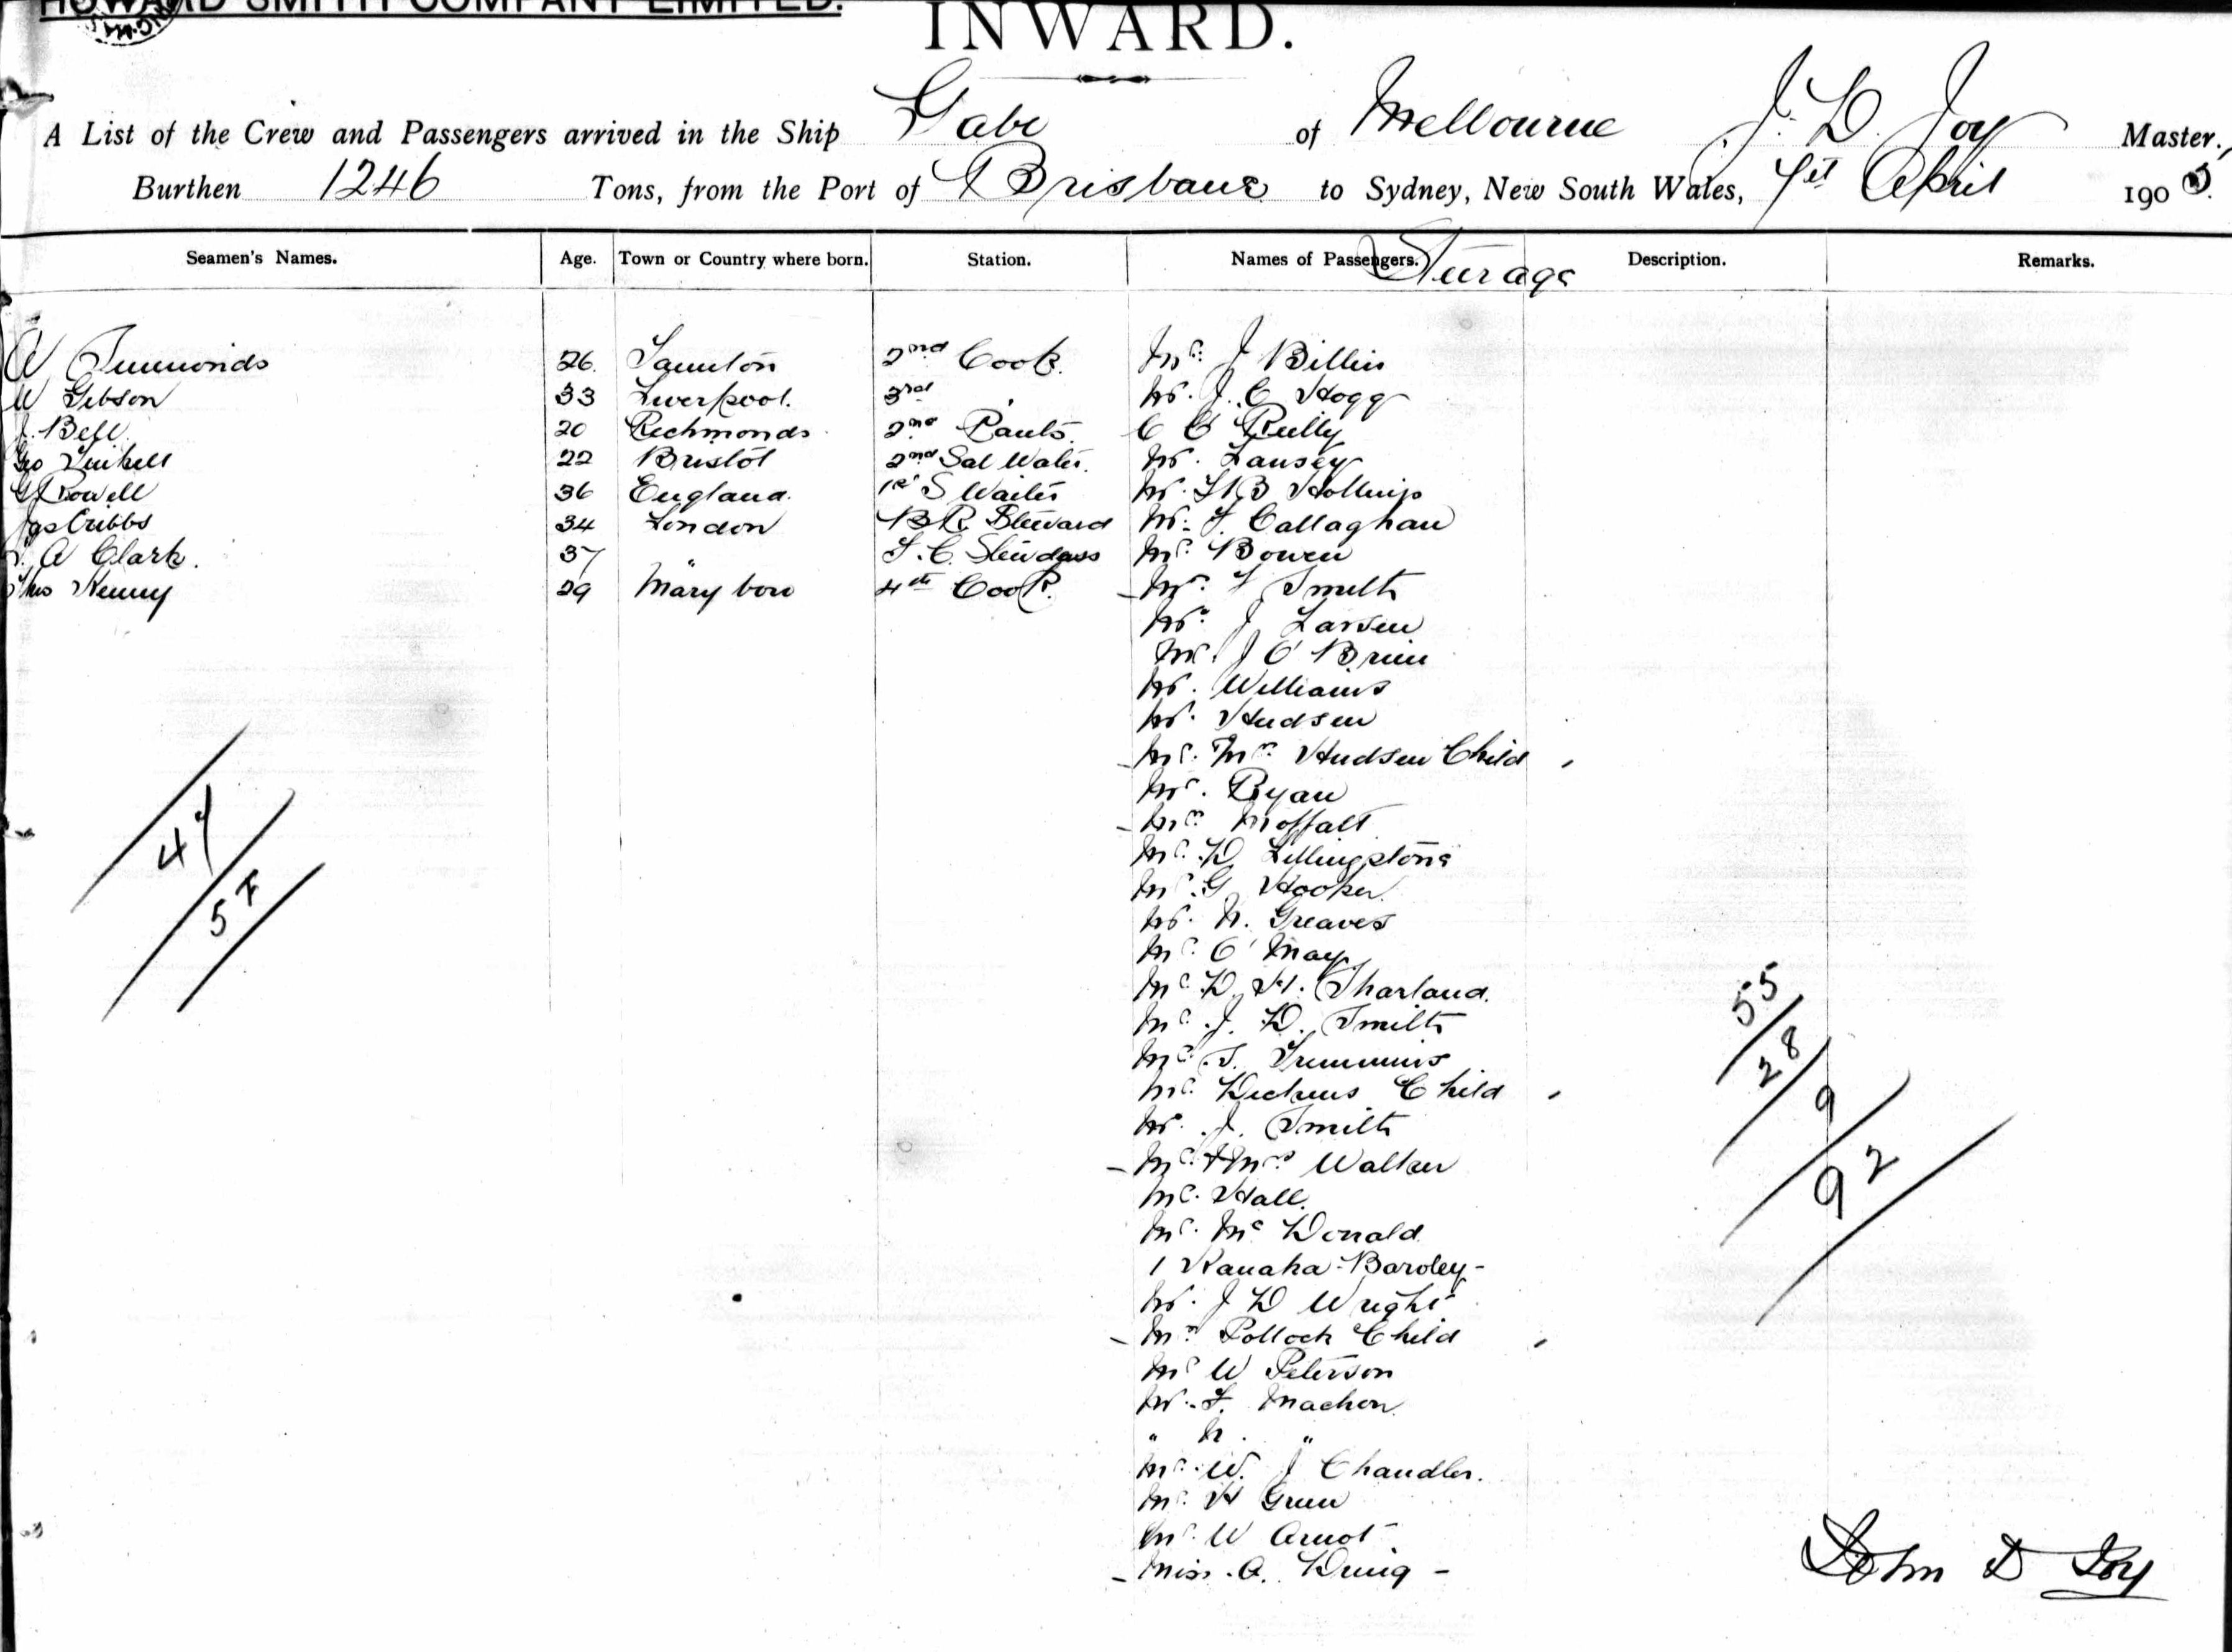 HOWARD SMITH COMPANY LIMITED.
INWARD.
A List of the Crew and Passengers arrived in the Ship Gabo of Melbourne, J. D. Joy Master,
Burthen 1246 Tons, from the Port of Brisbane to Sydney, New South Wales, 1st April 190
Seamen's Names. Age. Town or Country where born. Station. Names of Passengers. Steerage Description. Remarks.
W Simmonds 26. Taunton 2nd Cook. Mr. J Billin
W Gibson 33 Liverpool. 3rd " Mr. J. C Hogg
J. Bell 20 Richmonds 2nd Pants. C O'Reilly
Geo 22 Bristol 2nd Sal Waiter. Mr. Lansey
G Rowell 36 England. 1st S Waiter Mr.
Jas Cribbs 34 London B R Steward Mr. Callaghan
A Clark. 37 " S. C. Stewdess Mr. Bowen
Thos Kenny 29 Mary boro 4th Cook. Mr. Smith
Mr. J Larsen
Mr. J O'Brien
Mr. Williams
Mr. Hudson
Mr. Mrs. Hudson Child
Mr. Ryan
Mrs. Moffatt
Mr. D. Lillingstone
Mr. G Hooper.
Mr. N. Greaves
Mr. O'May
Mr. D. H. Sharland.
Mr. J. D. Smith
Mr. Trimmins
Mr. Dickens Child
Mr. J. Smith
Mr. & Mrs. Walker
Mr. Hall.
Mr. Mc Donald
1 Kanaka - Baroley -
Mr. J D Wright
Mrs. Pollock Child
Mr W Peterson
Mr. F. Machon.
" N. "
Mr. W. J Chandler.
Mr. H Green
Mr. W Arnot
Miss. A.
47
57
55
28
9
92
John D Joy